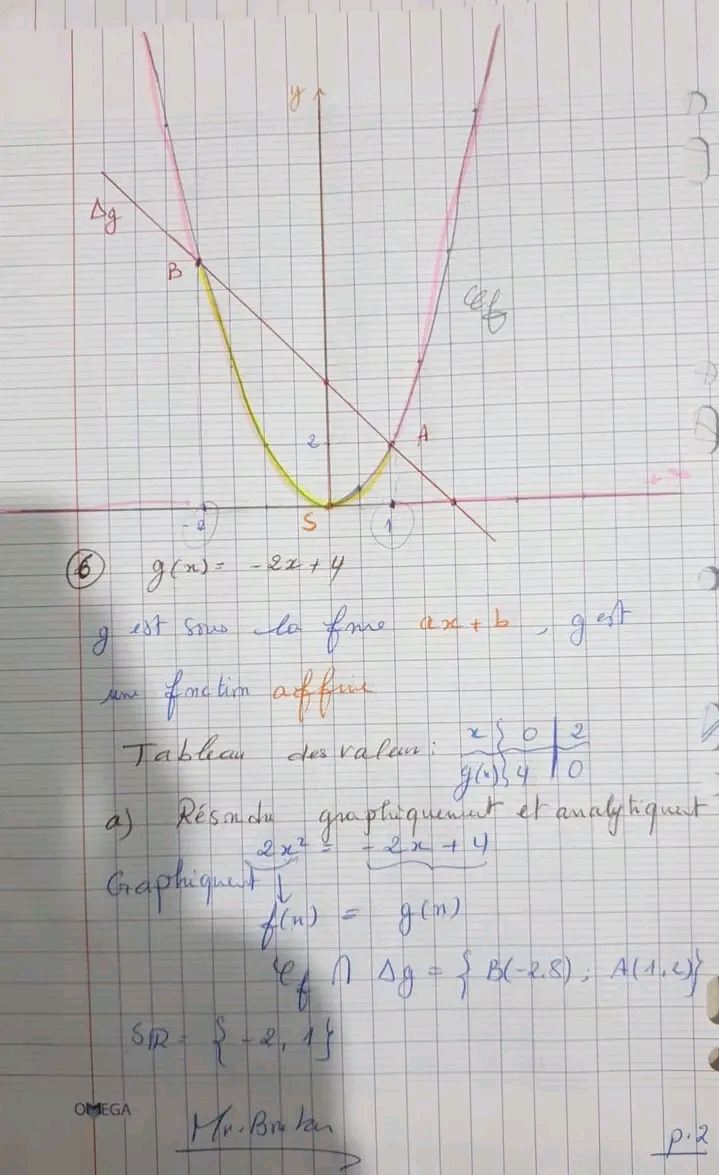 y
Δg
B
Cf
A
2
S
-2
1
6 g(x) = -2x + 4
g est sous la fme ax + b, g est
une fnction affine
Tableau des valeur: x 0 2
g(x) 4 0
a) Résoudre graphiquement et analytiquement
2x² = -2x + 4
Graphiquement ↓
f(x) = g(x)
Cf ∩ Δg = { B(-2.8) ; A(1,2)}
Sℝ = { -2, 1}
OMEGA
p.2